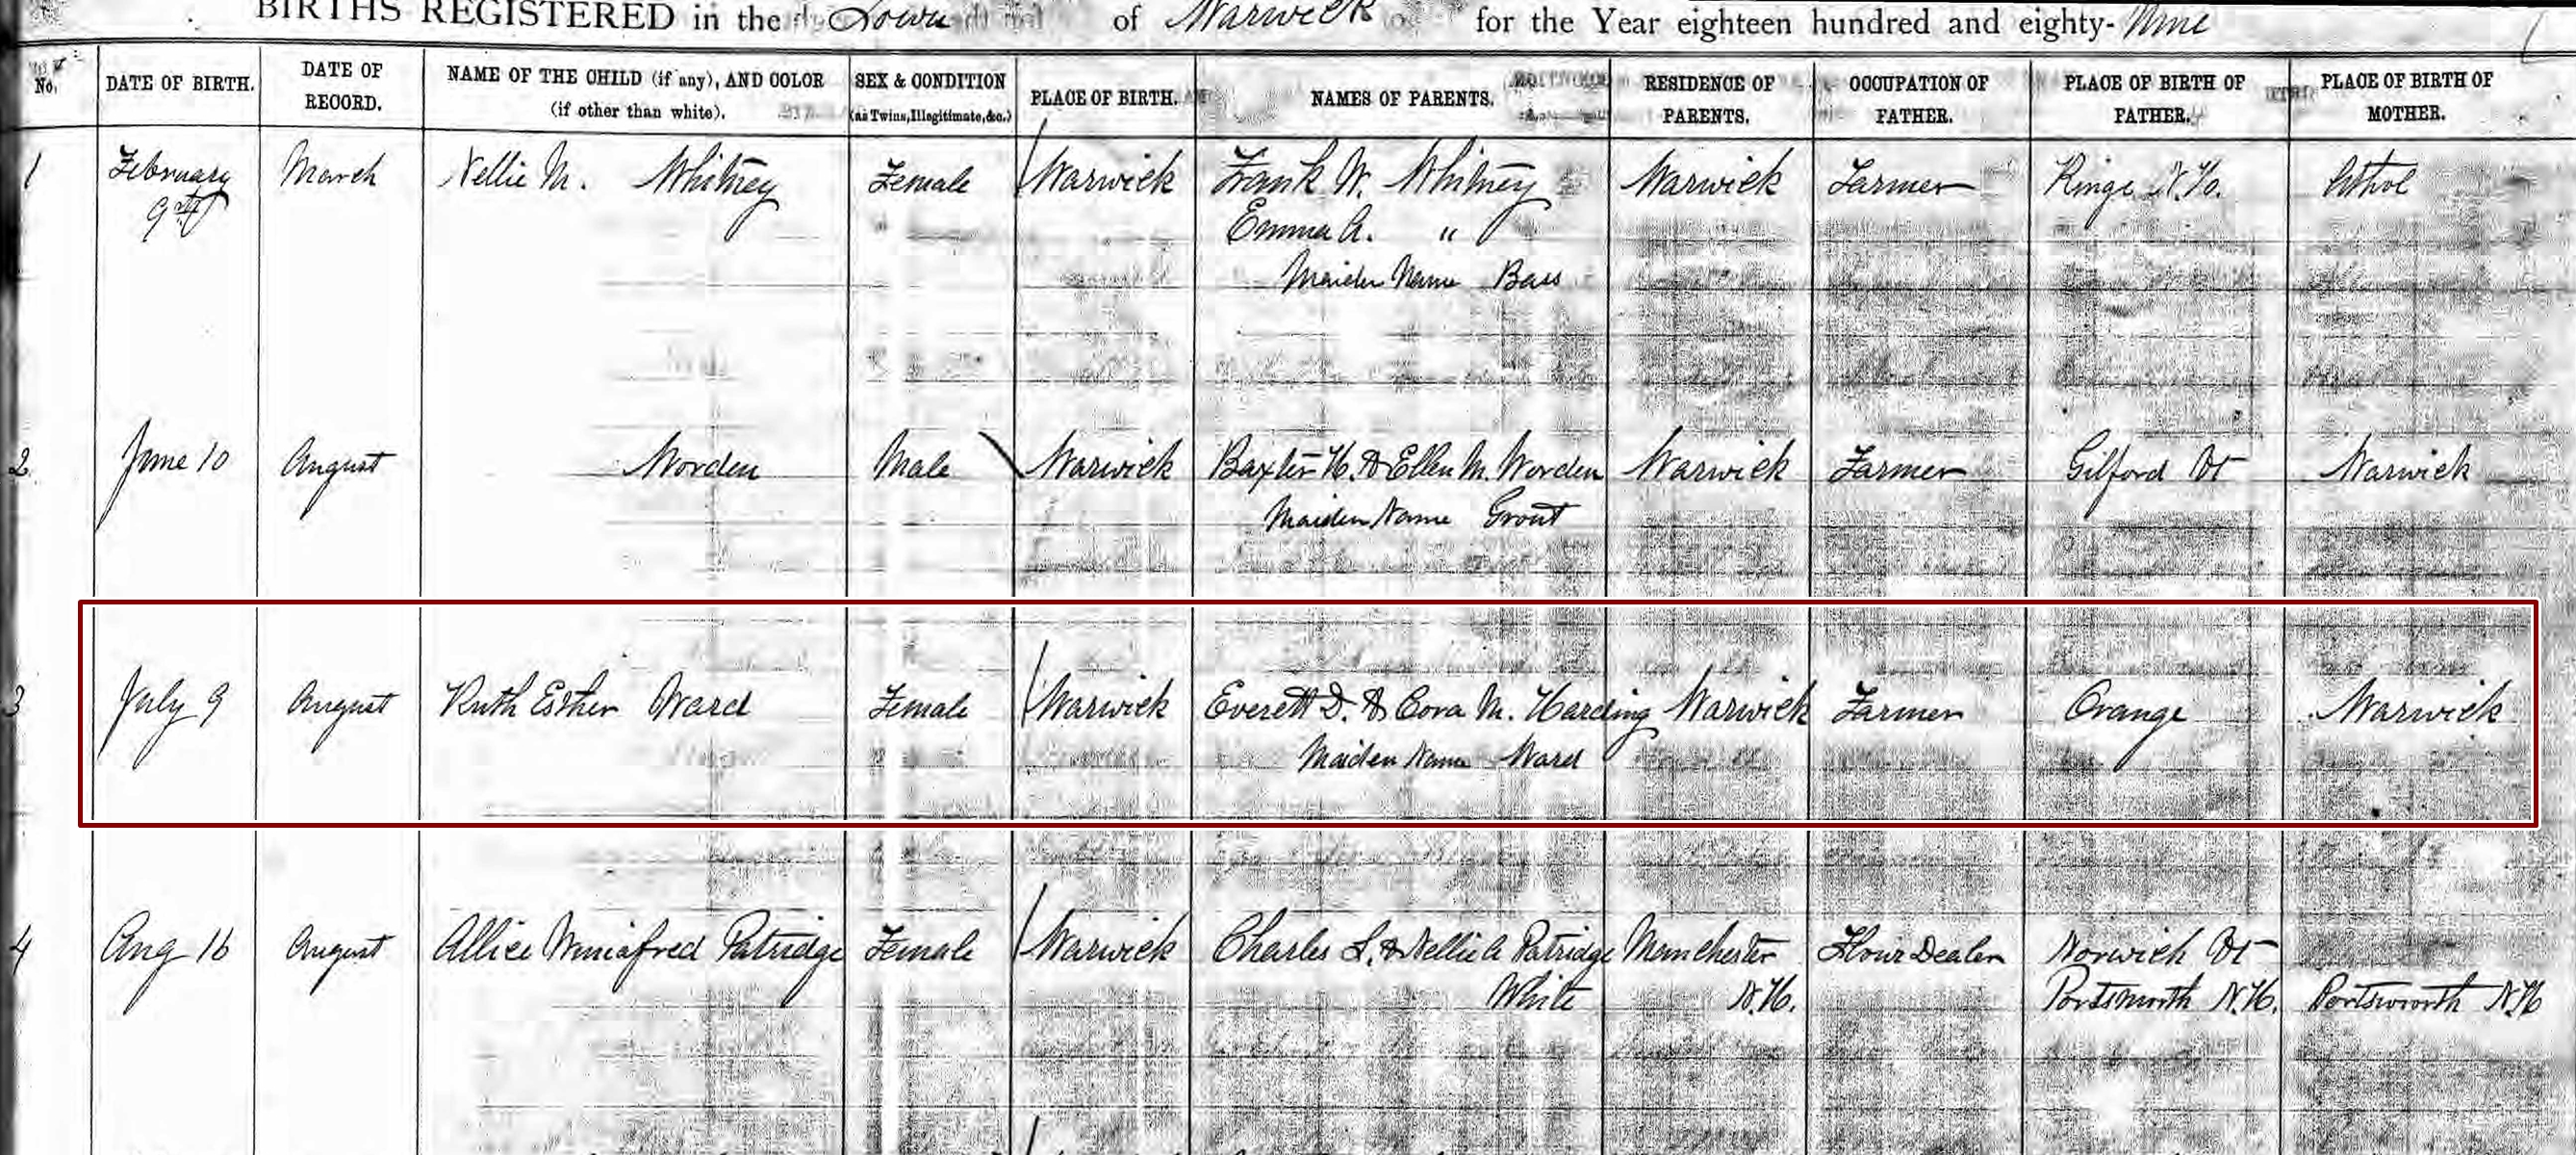 BIRTHS REGISTERED in the Town of Warwick for the Year eighteen hundred and eighty-Nine
No. DATE OF BIRTH. DATE OF RECORD. NAME OF THE CHILD (if any), AND COLOR (if other than white). SEX & CONDITION (as Twins, Illegitimate, &c.) PLACE OF BIRTH. NAMES OF PARENTS. RESIDENCE OF PARENTS. OCCUPATION OF FATHER. PLACE OF BIRTH OF FATHER. PLACE OF BIRTH OF MOTHER.
1 February March Nellie M. Whitney Female Warwick Frank W. Whitney Warwick Farmer Ringe N.H. Athol
9th Emma A. "
Maiden Name Bass
2 June 10 August Worden Male Warwick Baxter H. & Ellen M. Worden Warwick Farmer Gilford Vt Warwick
Maiden Name Grout
3 July 9 August Ruth Esther Ward Female Warwick Everett D. & Cora M. Harding Warwick Farmer Orange Warwick
Maiden Name Ward
4 Aug 16 August Allice Winiafred Patridge Female Warwick Charles S. & Nellie A Patridge Manchester Flour Dealer Norwich Vt
White N.H. Portsmouth N.H. Portsworth N.H